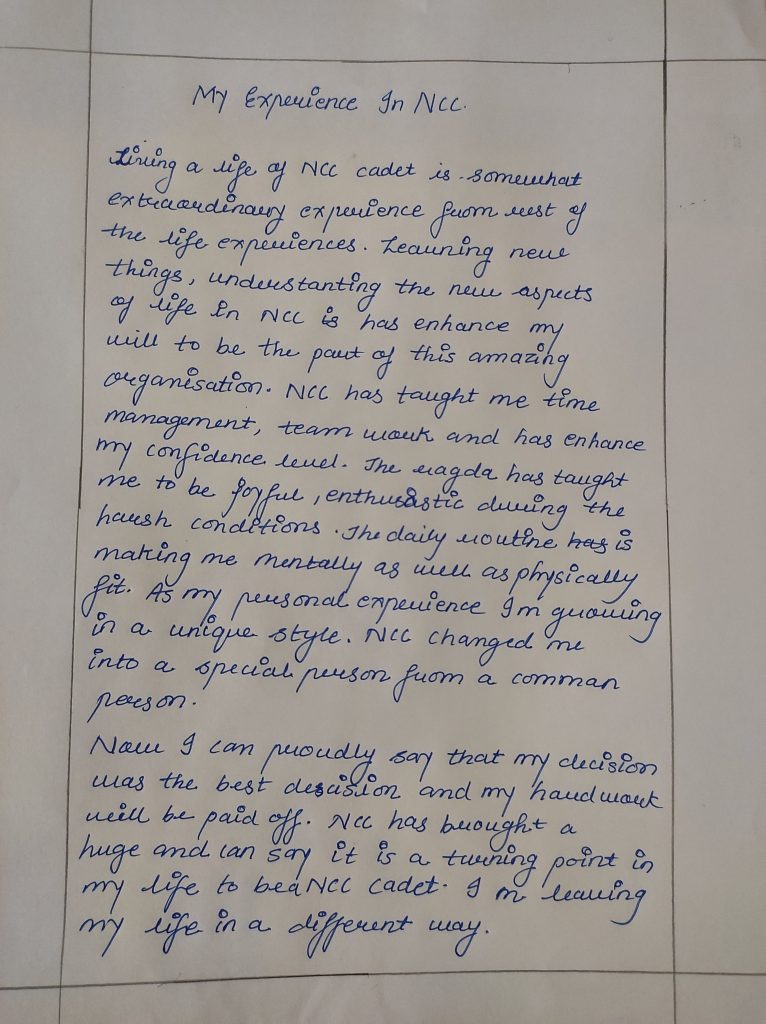 My Experience In NCC.
Living a life of NCC cadet is somewhat
extraordinary experience from rest of
the life experiences. Learning new
things, understanting the new aspects
of life in NCC is has enhance my
will to be the part of this amazing
organisation. NCC has taught me time
management, team work and has enhance
my confidence level. The ragda has taught
me to be joyful, enthusiastic during the
harsh conditions. The daily routine has is
making me mentally as well as physically
fit. As my personal experience I'm growing
in a unique style. NCC changed me
into a special person from a comman
person.
Now I can proudly say that my decision
was the best descision and my hardwork
will be paid off. NCC has brought a
huge and can say it is a turning point in
my life to be a NCC cadet. I'm leaving
my life in a different way.